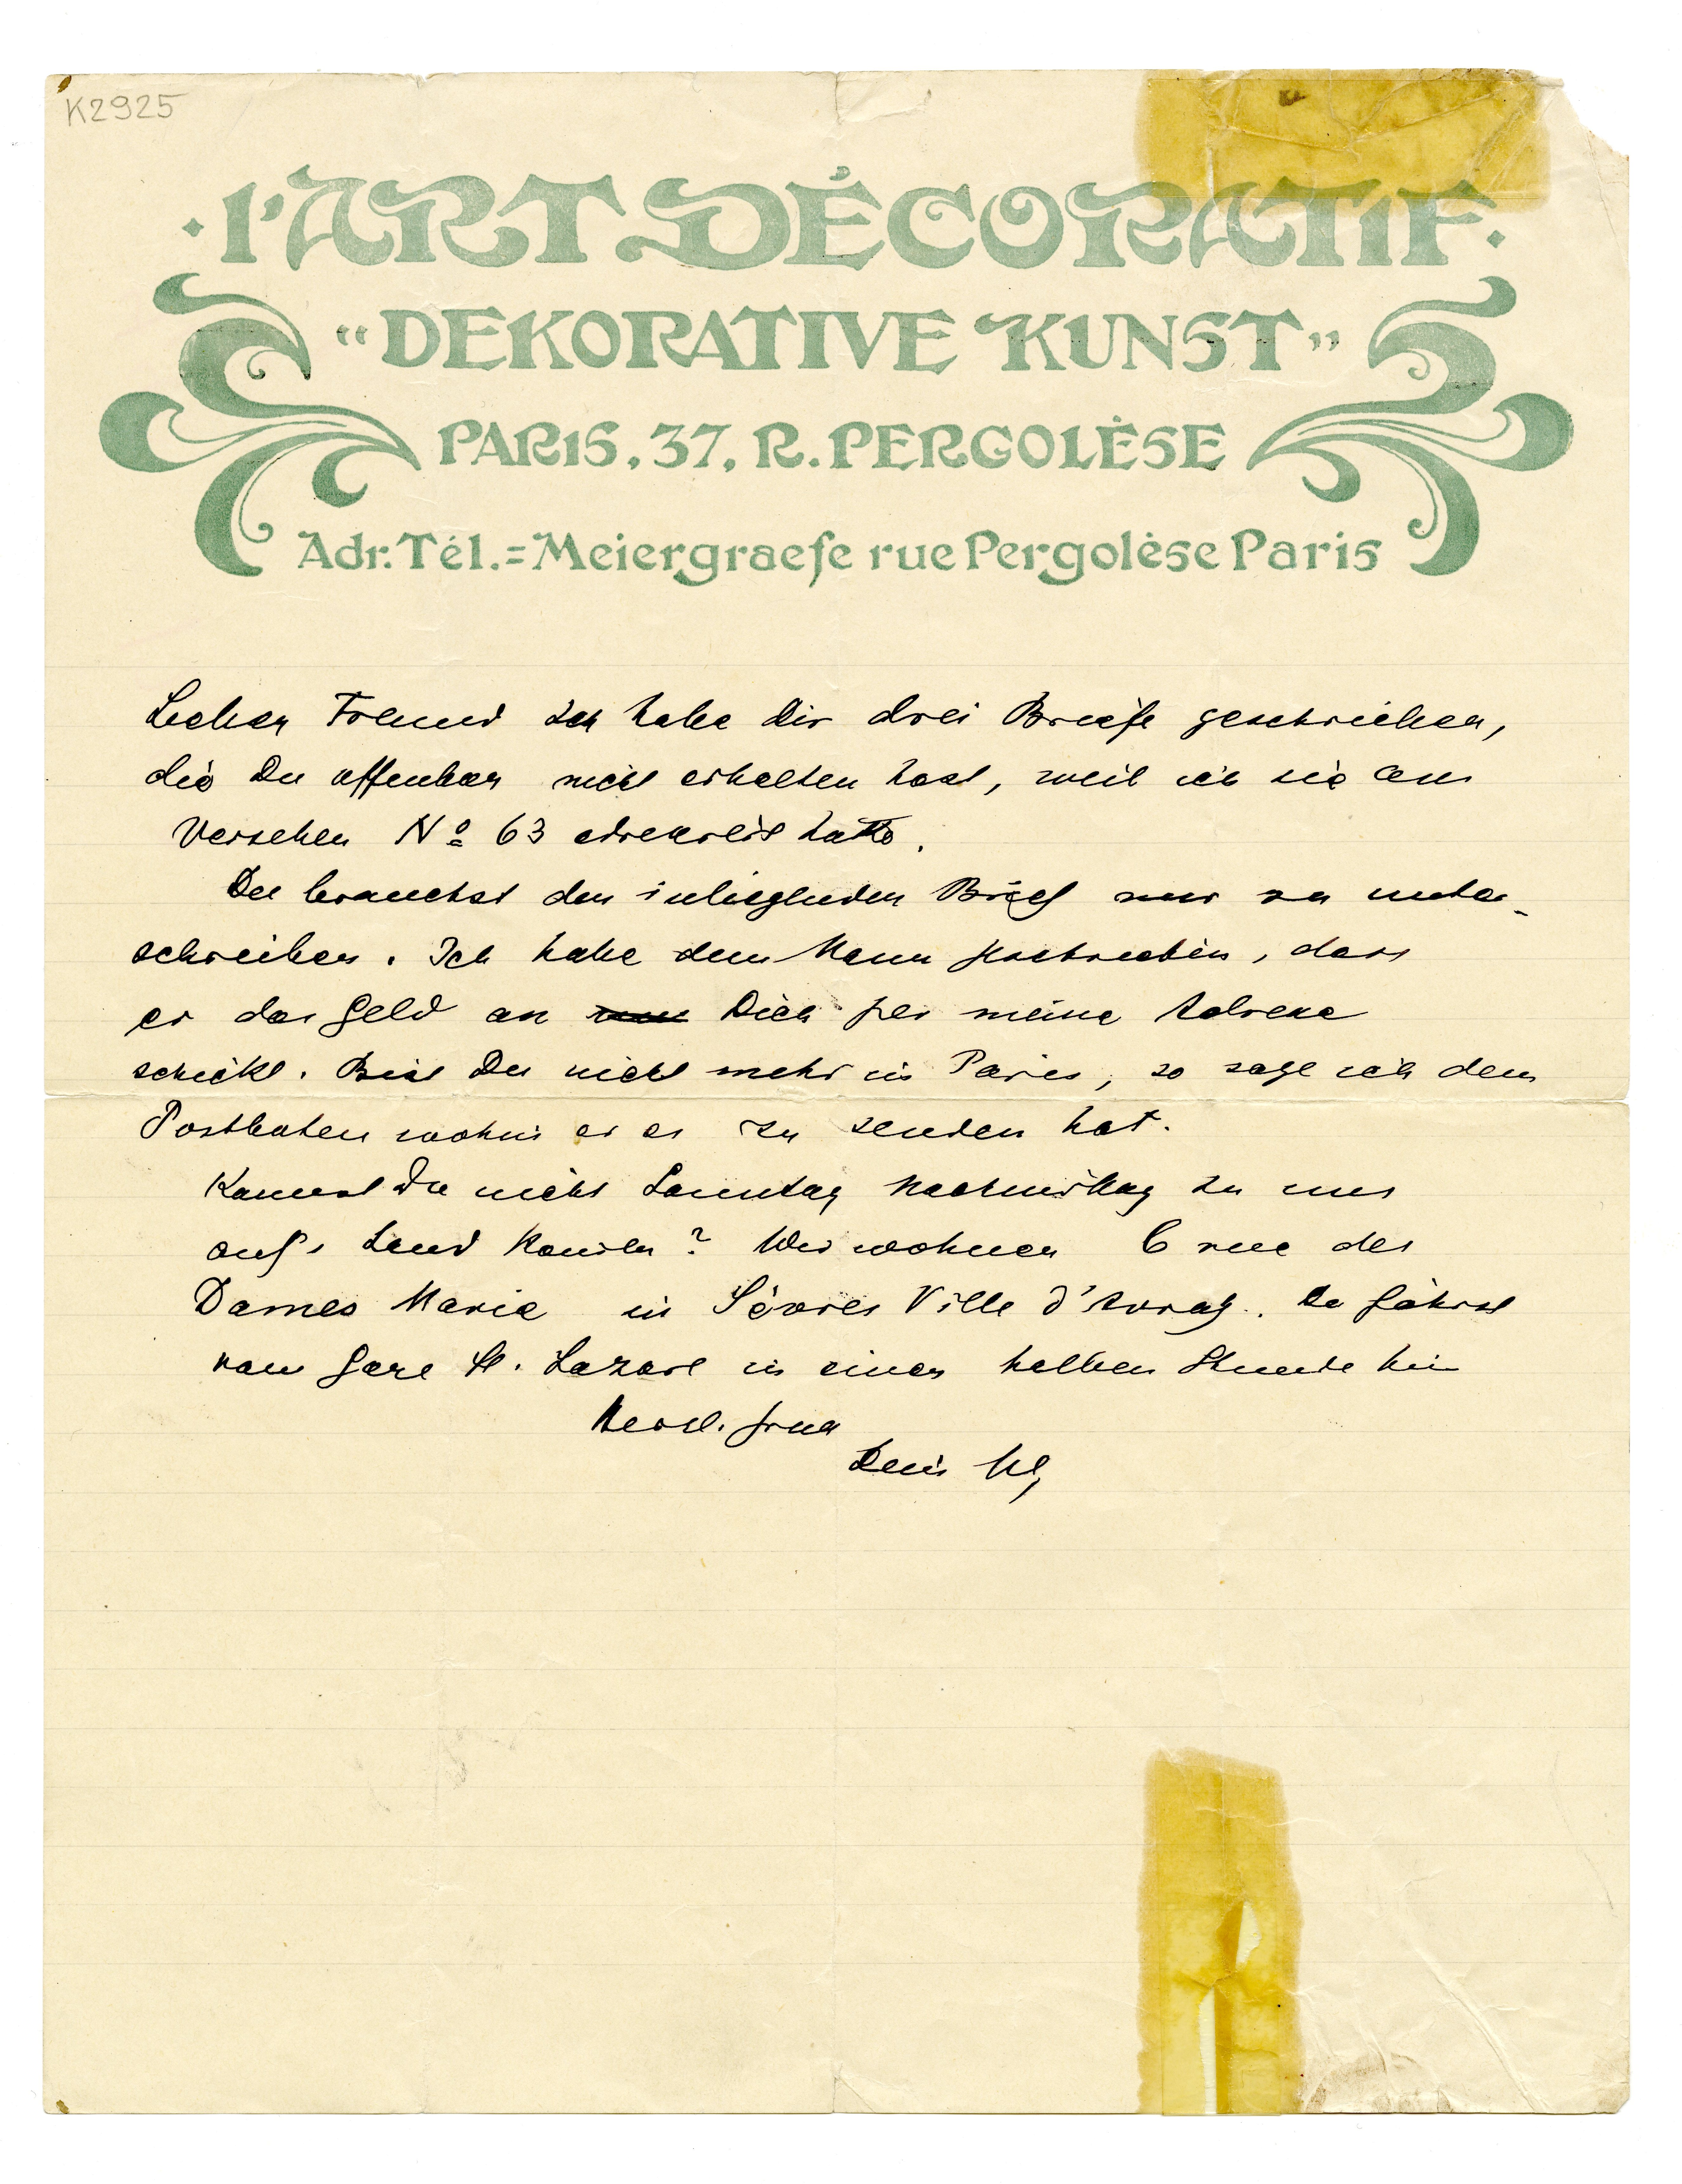 K2925
· L'ART DÉCORATIF ·
"DEKORATIVE KUNST"
PARIS, 37, R. PERGOLÈSE
Adr. Tél. = Meiergraefe rue Pergolèse Paris
Lieber Freund Ich habe Dir drei Briefe geschrieben,
die Du offenbar nicht erhalten hast, weil ich sie aus
Versehen Nº 63 adressirt hatte.
Du brauchst den inliegenden Brief nur zu unter-
schreiben. Ich habe dem Mann geschrieben, dass
er das Geld an Dich per meine Adresse
schickt. Bist Du nicht mehr in Paris, so sage ich dem
Postboten wohin er es zu senden hat.
Kannst Du nicht Sonntag Nachmittag zu uns
aufs Land kommen? Wir wohnen 6 rue des
Dames Marie in Sèvres Ville d'Avray. Du fährst
vom Gare St. Lazare in einer halben Stunde hin
Herzl. Gruss
Dein MG